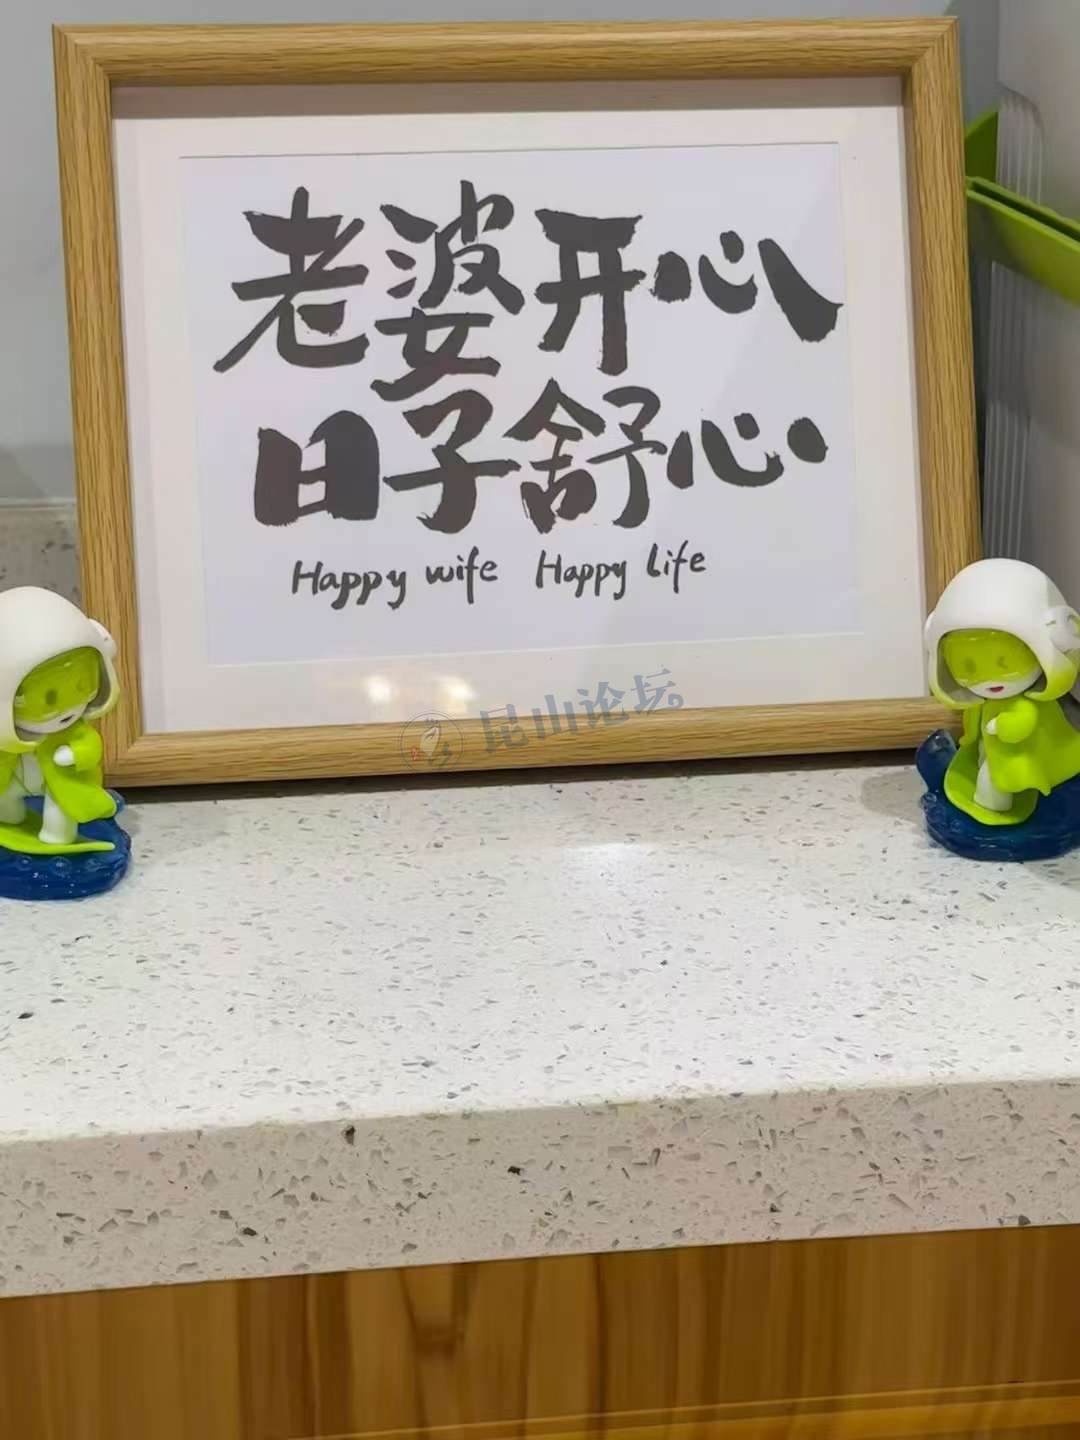 老婆开心
日子舒心
Happy wife Happy life
昆山论坛